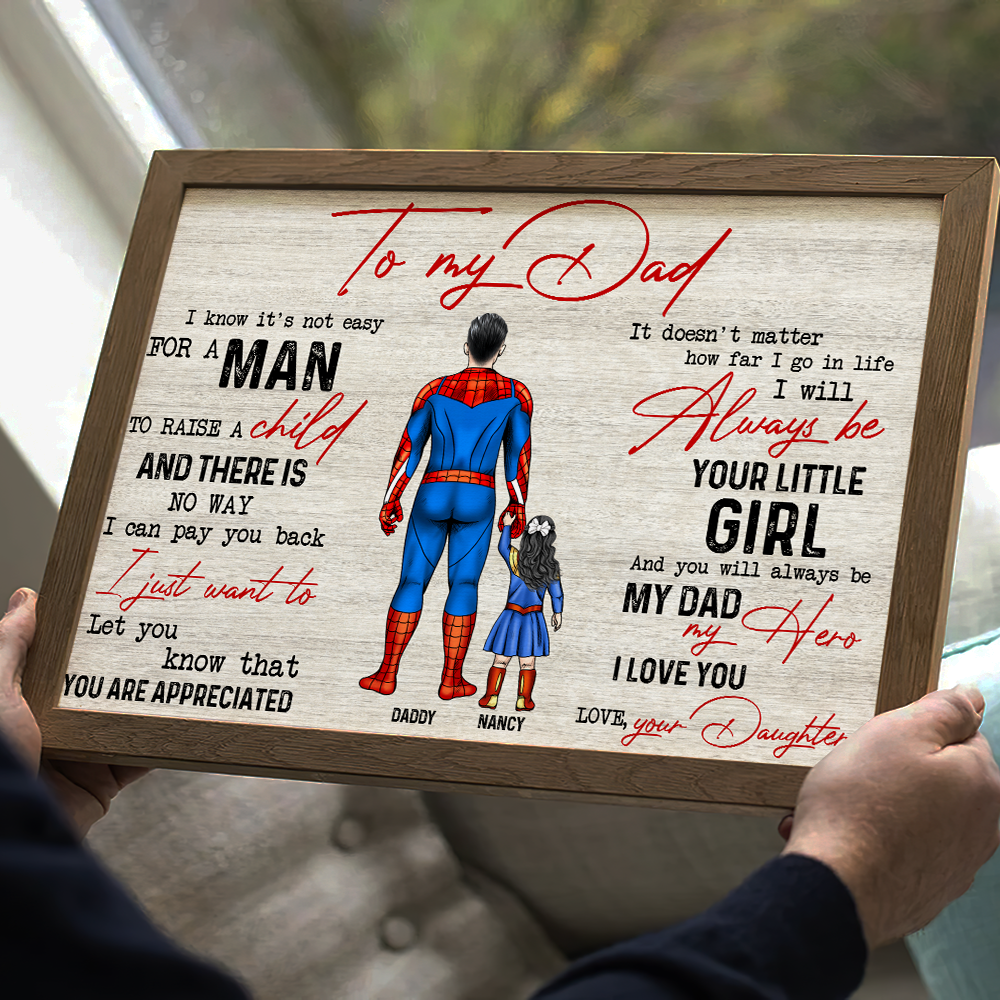 To my Dad
I know it's not easy
FOR A MAN
TO RAISE A child
AND THERE IS
NO WAY
I can pay you back
I just want to
Let you
know that
YOU ARE APPRECIATED
DADDY
NANCY
It doesn't matter
how far I go in life
I will
Always be
YOUR LITTLE
GIRL
And you will always be
MY DAD
my Hero
I LOVE YOU
LOVE, your Daughter